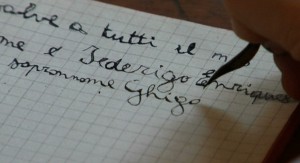 salve a tutti il m
me è Federigo Enriques
soprannome Ghigo